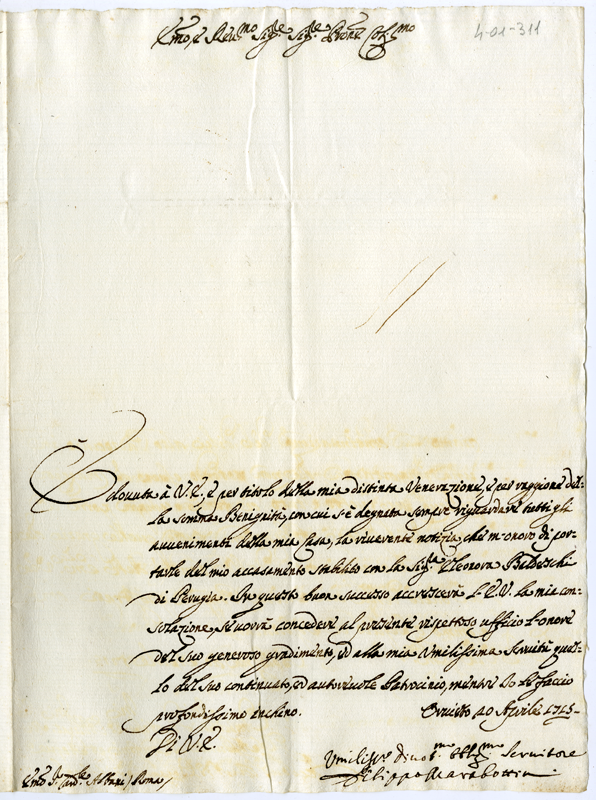 4-01-311
Emo, e Reu.mo Sig.re Sig.re Prone Col.mo
È douuta à V. E., e per titolo della mia distinta Venerazione, e per raggione del-
la somma Benignità, con cui s'è degnata sempre riguardare tutti gli
auuenimenti della mia Casa, la riuerente notizia, che m'onoro di por-
tarle del mio accasamento stabilito con la Sig.ra Eleonora Baldeschi
di Perugia. In questo buon successo accrescerà l'E. V. la mia con-
solazione, se uorrà concedere al presente rispettoso uffiċio l'onore
del suo generoso gradimento, ed alla mia Umilissima Seruitù quel-
lo del suo continuato, ed autoreuole Patrocinio, mentre Io le faccio
profondissimo inchino. Oruieto 10 Aprile 1715-
Di V. E.
Umiliss.o Diuot.mo Obblig.mo Seruitore
Filippo Marabottini
Emo S.r Card.le Albani / Roma /